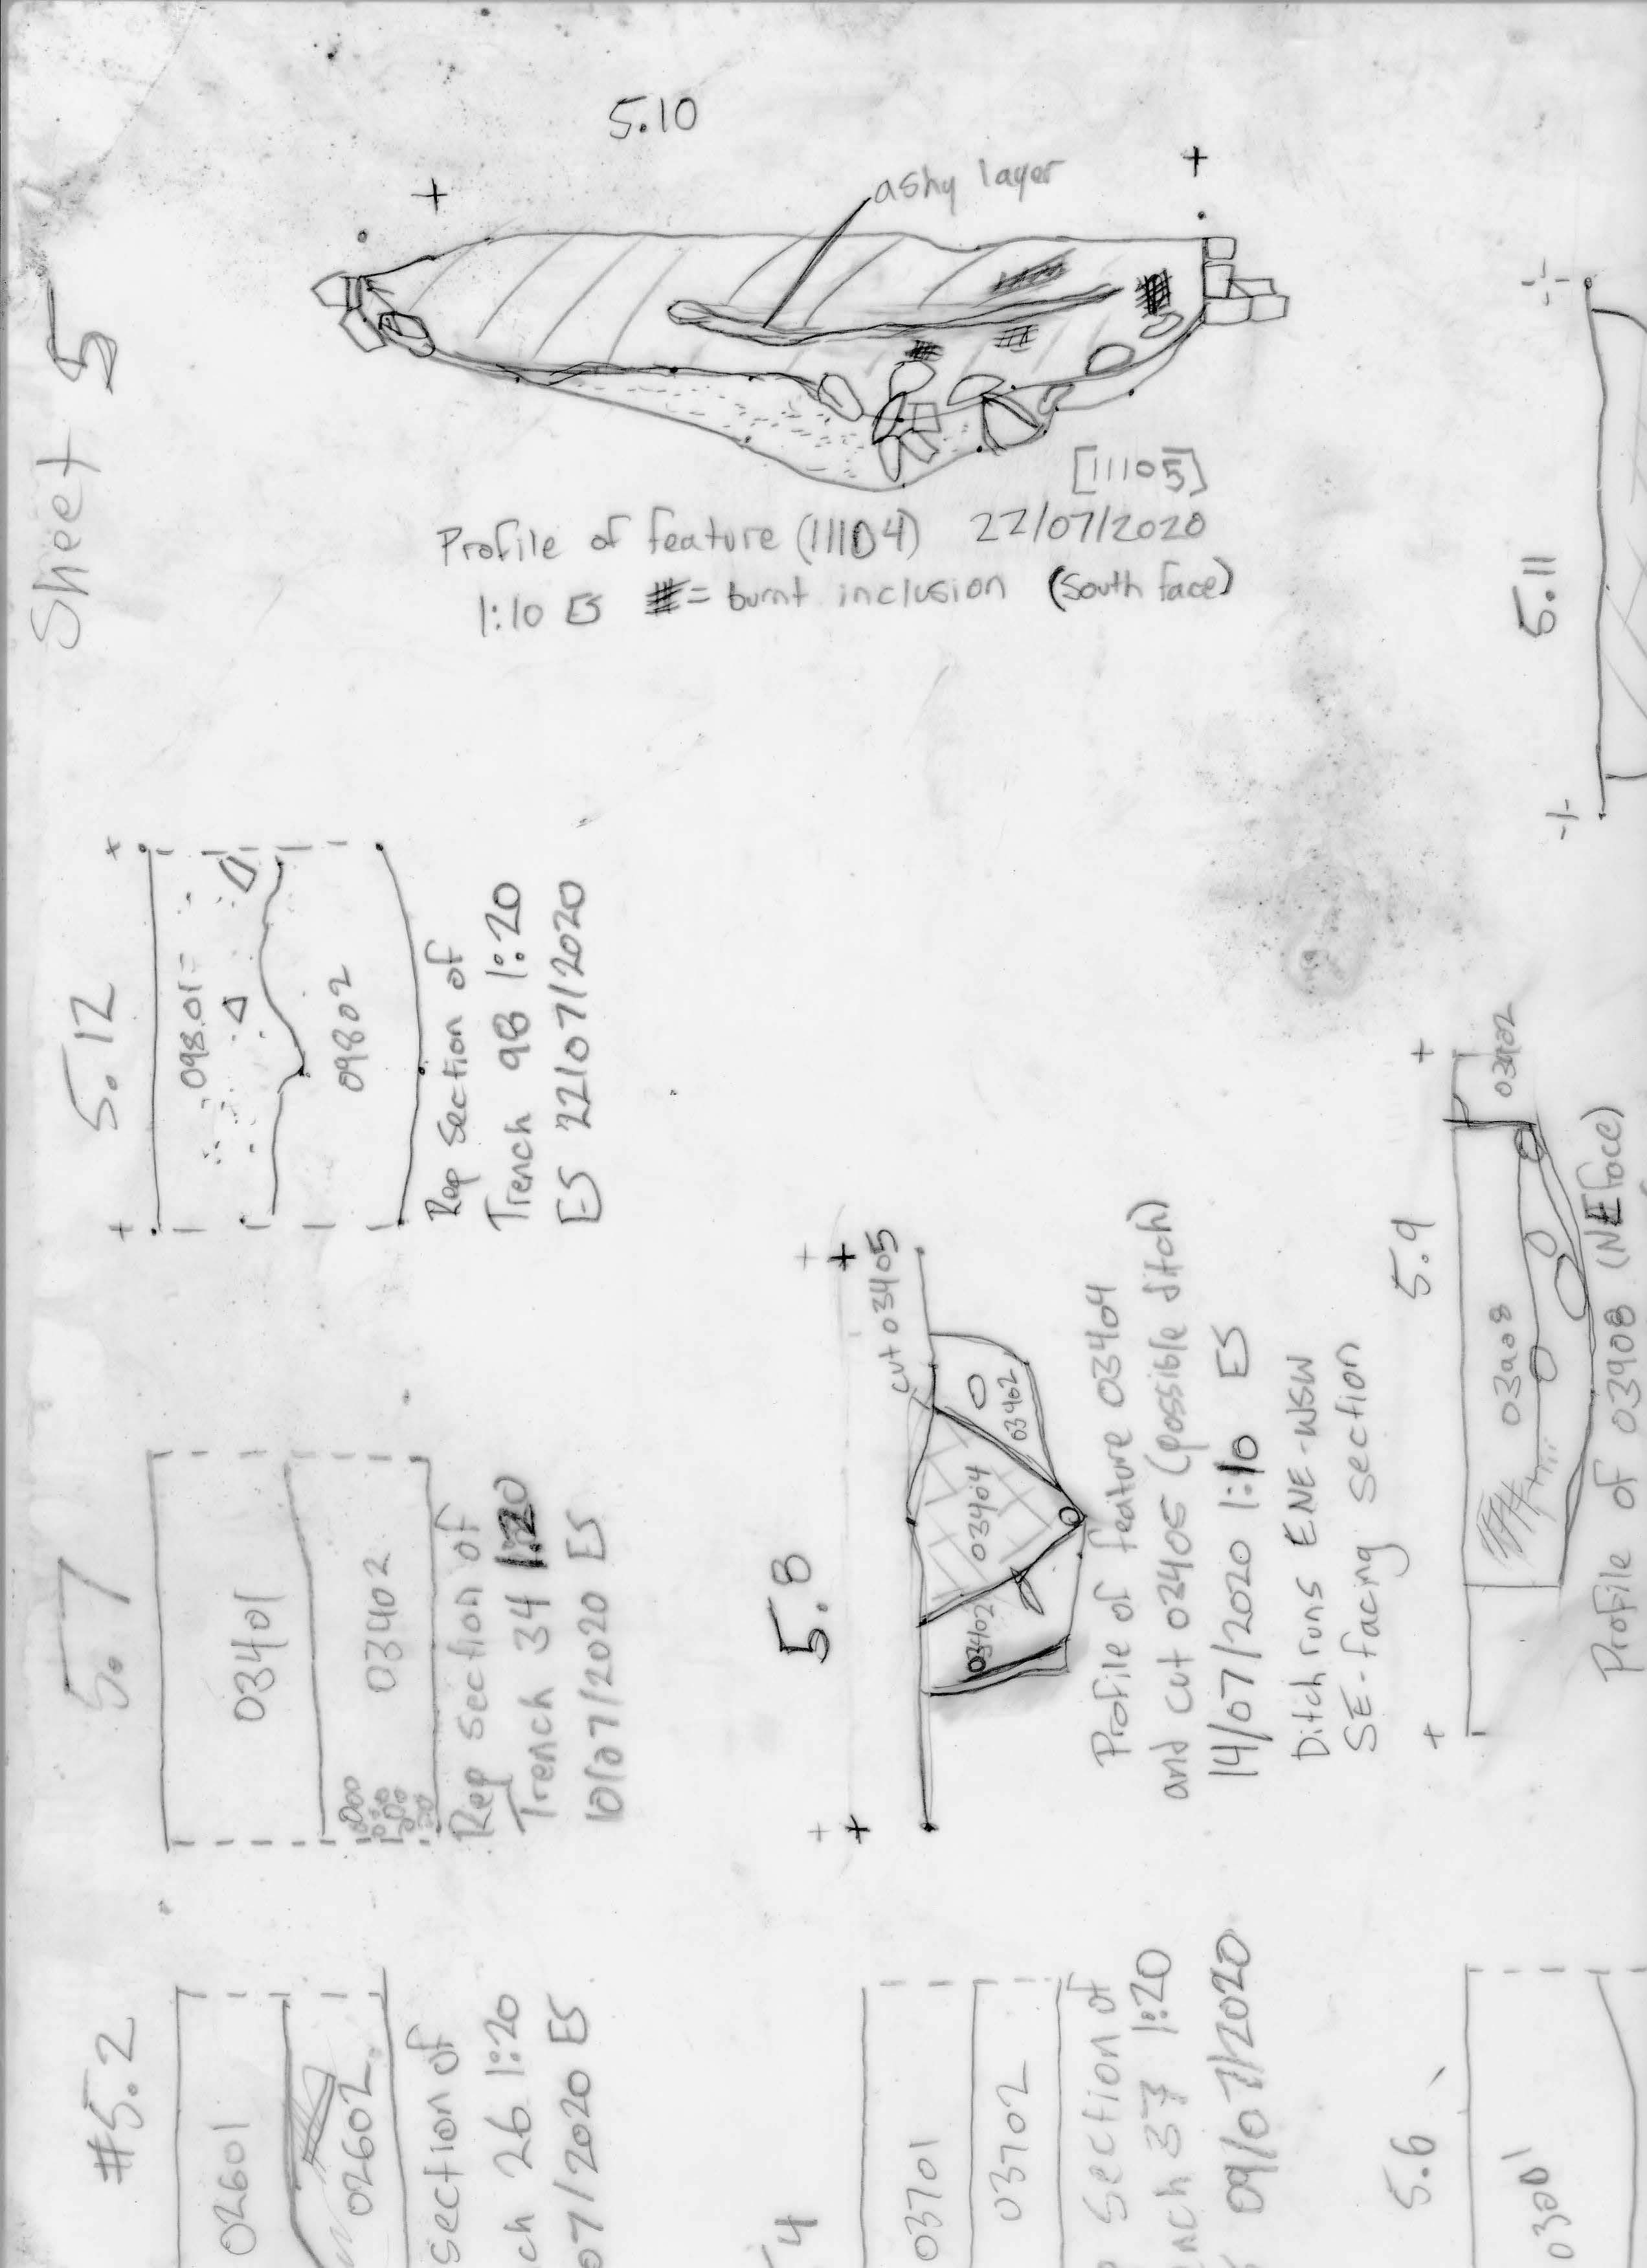 Sheet 5
5.10
ashy layer
[11105]
Profile of feature (11104) 22/07/2020
1:10 ES = burnt inclusion (South face)
5.12
09801
09802
Rep section of
Trench 98 1:20
ES 22/07/2020
5.7
03401
03402
Rep section of
Trench 34 1:20
10/07/2020 ES
#5.2
02601
02602
section of
ch 26 1:20
07/2020 ES
5.11
5.8
cut 03405
03402
03404
03402
Profile of feature 03404
and cut 03405 (possible ditch)
14/07/2020 1:10 ES
Ditch runs ENE-WSW
SE-facing section
4
03701
03702
section of
nch 37 1:20
09/07/2020
5.9
03902
03908
Profile of 03908 (NE face)
5.6